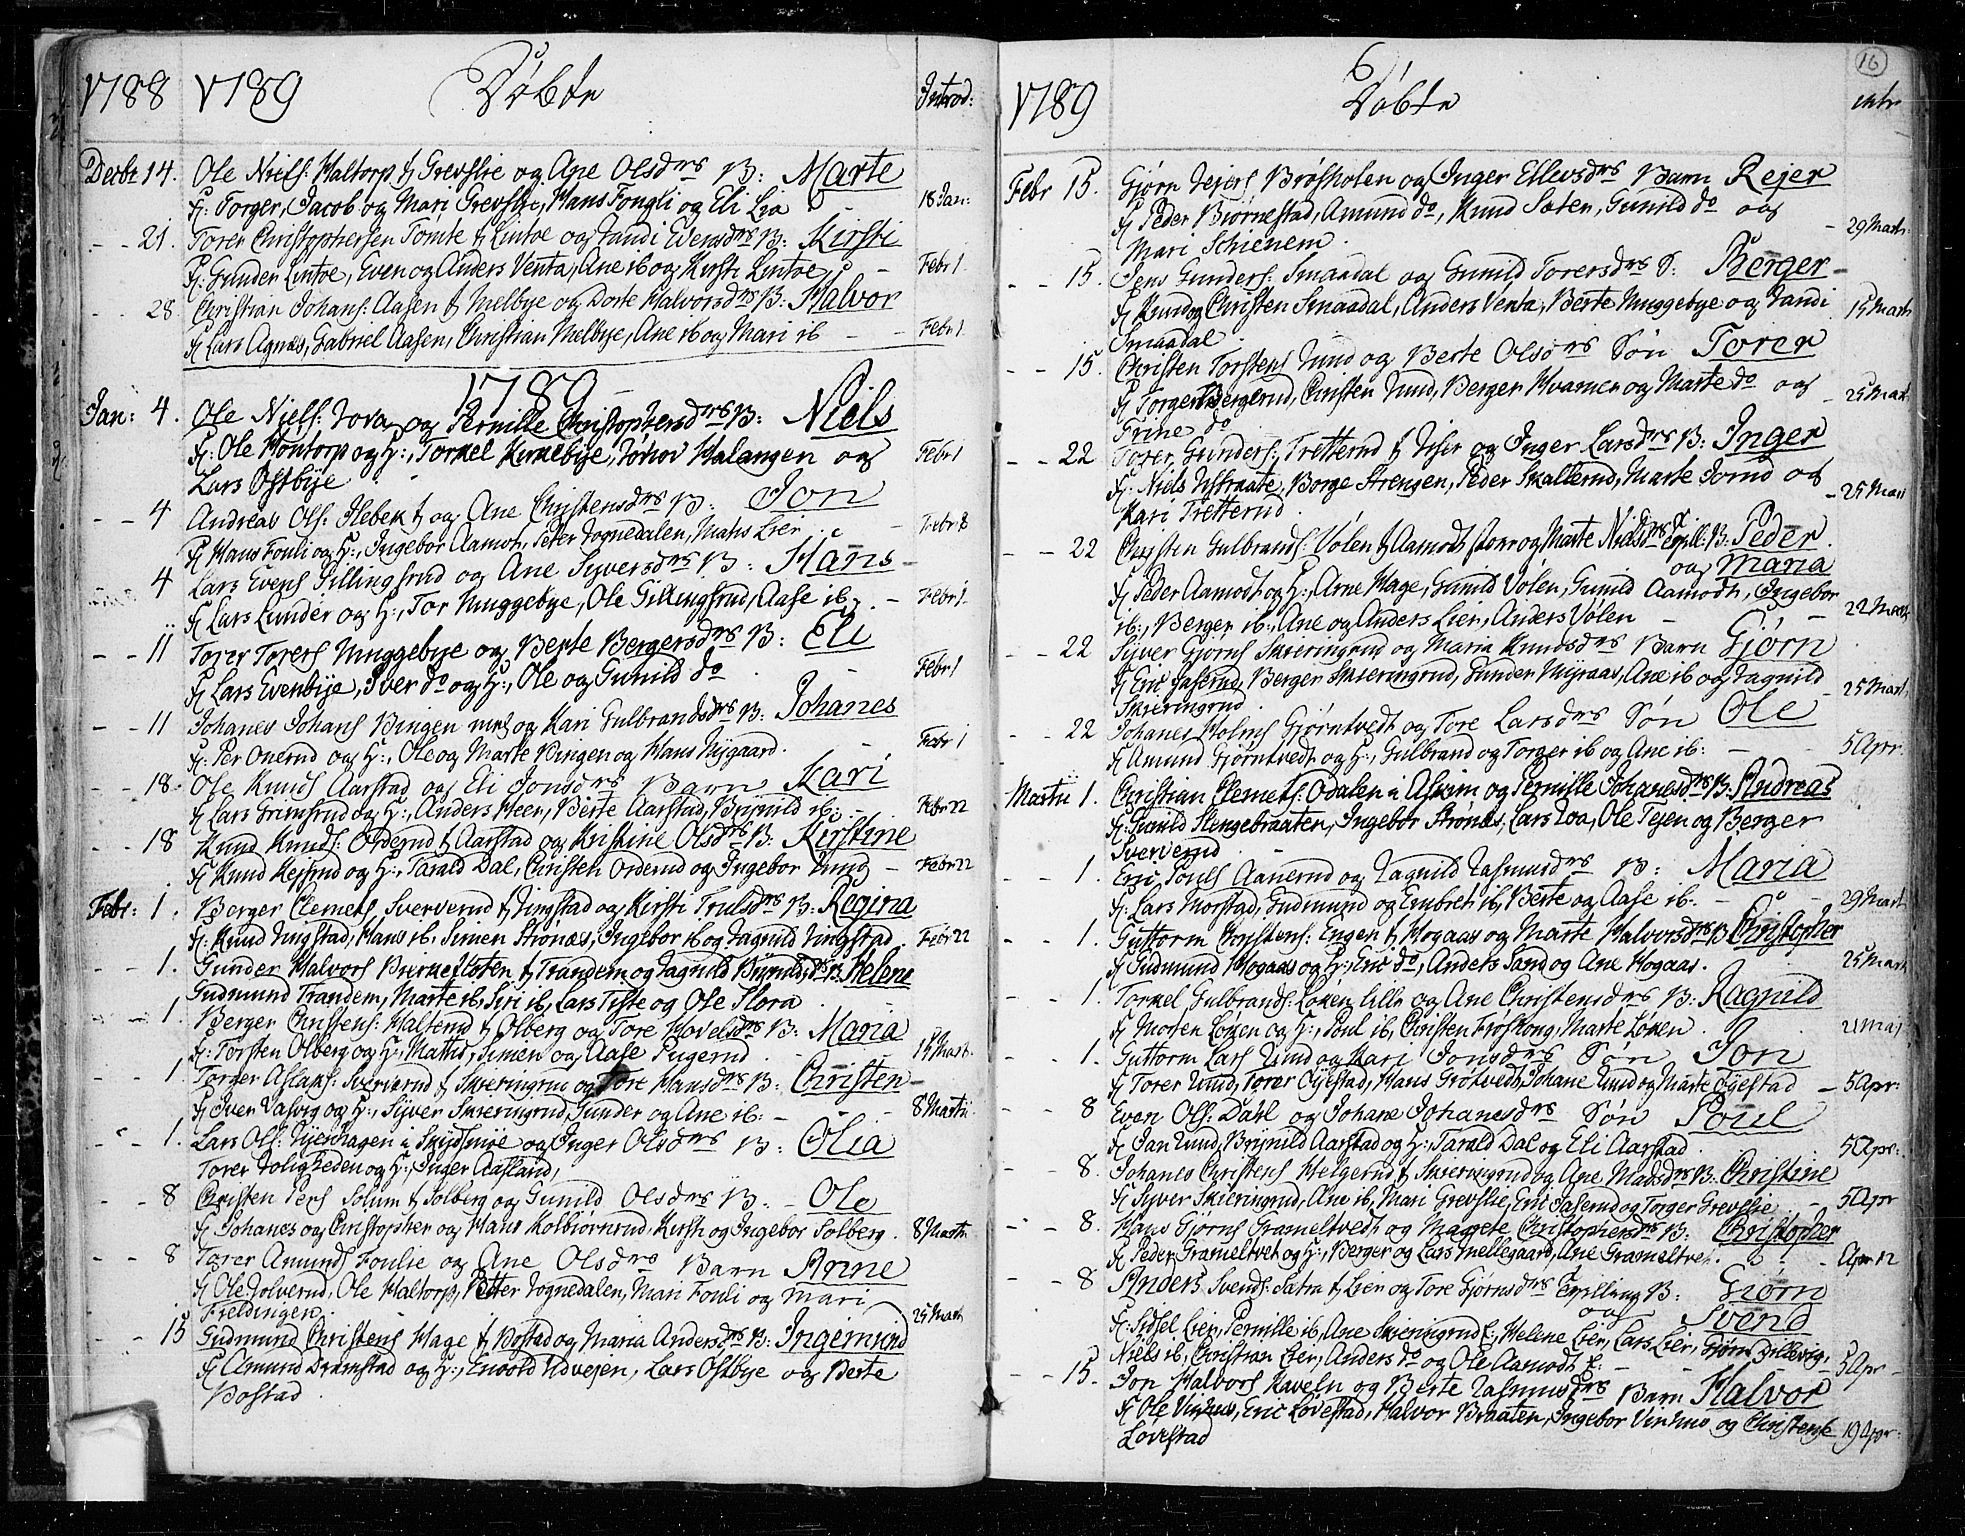 1788 1789 Døbte Introd:
Decbr 14. Ole Niels: Haltorp f Grevslie og Ane Olsdrs B: Marte
f: Torger, Jacob og Mari Grevslie, Hans Fougli og Eli Lia 18 Jan:
- - 21. Torer Christophersen Tomte f Lintoe og Randi Evensdrs B: Kirsti
f: Gunder Lintoe, Even og Anders Venta, Ane ib og Kirsti Lintoe - Febr 1
28 Christian Johans: Aasen f Melbye og Dorte Halvorsdrs B: Halvor
f Lars Agnæs, Gabriel Aasen, Christian Melbye, Ane ib og Mari ib - Febr 1.
1789
Jan: 4. Ole Niels: Tova og Pernille Christophersdrs B: Niels
f: Ole Montorp og H:, Torkel Kirkebye, Halangen og Febr 1
Lars Østbye
- - 4 Andreas Ols: Slebek f og Ane Christensdrs B: Jon
f Hans Fouli og H:, Ingebor Aamot, Peter Tognedalen, Mattis Lier - Febr 8
4 Lars Evens Gillingsrud og Ane Syversdrs B: Hans
f Lars Lunder og H:, Tor Muggebye, Ole Gillingsrud, Aase ib - Febr 1.
- - 11 Torer Torers Muggebye og Berte Bergersdrs B: Eli
f Lars Evenbye, Iver do og H:, Ole og Gunild do Febr 1
- - 11 Johanes Johans Bingen og Kari Gulbrandsdrs B: Johanes
f: Per Onerud og H:, Ole og Marte Bingen og Hans Nygaard. Febr 1
- - 18. Ole Knuds Aarstad og Eli Jonsdrs Barn Kari
f Lars Grimsrud og H:, Anders Heer, Berte Aarstad, Brynild ib: - Febr 22
- - 18 Knud Knuds: Orderud f Aarstad og Kristine Olsdrs B: Kirstine
f Knud Kejsrud og H:, Tarald Dal, Christen Orderud og Ingebor Lund - Febr 22
Febr: 1. Berger Clemets, Sververud f Lingstad og Kirsti Trulsdrs B: Regina
f: Knud Lingstad, Hans ib. Simen Strønæs, Ingebor ib og Ragnild Lingstad Febr 22
- - 1. Gunder Halvors Birkefloten f Trandem og Ragnild Brynilds: drs B: Helene
Gudmund Trandem, Marte ib, Siri ib, Lars Tiste og Ole Flora
- - 1 Berger Christens: Halterud f Olberg og Tore Hovelsdrs B: Maria
f: Torsten Olberg og H:, Mattis, Simen og Aase Pugerud. 14 Mart.
- - 1 Torger Aslaks: Sververud f Skieringrud og Tore Hansdrs B: Christen
f Iver Valvig og H:, Syver Skieringrud, Gunder og Ane ib: - 8 Martii
- - 1. Lars Ols: Nyenhagen i Skydsmoe og Inger Olsdrs B: Olia
Torer Roligheden og H:, Inger Aasland,
- - 8 Christen Pers Solum f Solberg og Gunild Olsdrs B: - Ole
f Johanes og Christopher og Hans Kolbiørnrud, Kirsti og Ingebor Solberg. 8 Martii
- - 8 Torer Amunds Foulie og Ane Olsdrs Barn Anne
f Ole Solverud, Ole Haltorp, Petter Tognedalen, Mari Fouli og Mari
Fieldingen. 25 Mart
- - 15 Gudmund Christens Hage f Bøstad og Maria Andersdrs B: Ingemund
f Amund Dramstad og H:, Enoold Udvejen, Lars Østbye og Berte
Bøstad
16
1789 Døbte intr
Febr 15. Gjørn Rejers Brøsholen og Inger Ellevsdrs Barn Rejer
f Peder Biørnestad, Amund do, Knud Sæter, Gunild do og - 29 Mart:
Mari Schienem.
- - 15. Jens Gunders: Smaadal og Gunild Torersdrs S: Berger
f Knud og Christen Smaadal, Anders Venta, Berte Muggebye og Randi 15 Mart
Smaadal
- - 15. Christen Torstens Lund og Berte Olsdrs Søn Torer
f Torger Bergerud, Christen Lund, Berger Kvarner og Marte do og - 25 Mart.
Trine do
- - 22 Torer Gunders, Tretterud f Riser og Inger Larsdrs B: Inger
f: Niels Ustraate, Borge Strengen, Peder Skallerud, Marte Torud og - 25 Mart
Kari Tretterud
- - 22 Christen Gulbrands: Volen f Aamodt og Marte Nielsdrs Tvill: B: Peder
og Maria
f Peder Aamodt og H:, Arne Hage, Gunild Volen, Gunild Aamodt, Ingebor
ib:, Berger ib:, Ane og Anders Lier, Anders Volen - 22 Mart
- - 22 Syver Gjørns Skieringrud og Maria Knudsdrs Barn Gjørn
f Eric Jaserud, Berger Skieringrud, Gunder Myraas, Ane ib og Ragnild - 25 Mart.
Skieringrud
- - 22 Johanes Holms Gjørntvedt og Tore Larsdrs Søn Ole
f Amund Gjørntvedt og H:, Gulbrand og Torger ib og Ane ib: - 5 Apr.
Martii 1. Christian Clemets: Odalen i Askim og Pernille Johanesdrs B: Andreas
f: Gunild Slengebraaten, Ingebor Strønæs, Lars Loa, Ole Tejen og Berger
Sververud
- - 1. Eric Pouls Aanerud og Ragnild Rasmusdrs B: Maria
f: Lars Morstad, Gudmund og Embret ib, Berte og Aase ib. - 29 Mart
- - 1. Guttorm Christens: Engen f Hogaas og Marte Halvorsdrs B Christopher
f Gudmund Hogaas og H:, Eric do, Anders Sand og Ane Hogaas. 25 Mart
- - 1. Torkel Gulbrands Løken lille og Ane Christensdrs B: Ragnild
f Mosen Løken og H:, Poul ib, Christen Frøshoug, Marte Løken. 21 Maj
- - 1. Guttorm Lars Lund og Kari Jonsdrs Søn Jon
f Torer Lund, Torer Oyestad, Hans Grøtvedt, Johane Lund og Marte Oyestad - 5 Apr:
- - 8 Even Ols: Dahl og Johane Johanesdrs Søn Poul
f Jan Lund, Brynild Aarstad og H:, Tarald Dal og Eli Aarstad 5 Apr:
- - 8. Johanes Christens Helgerud f Skieringrud og Ane Madsdrs B: Christine
f Syver Skieringrud, Ane ib, Mari Grevslie, Eric Jaserud og Torger Grevslie - 5 Apr
- - 8. Hans Gjørns Grameltvedt og Maggete Christophersdrs B: Christopher
f: Peder Grameltvet og H:, Berger og Lars Mellegaard, Ane Grameltvet. Apr 12
- - 8 Anders Svends: Sætra f Lier og Tore Gjørnsdrs Tvilling B: Giørn
og Svend
f: Sidsel Lier, Pernille ib, Ane Skieringrud f:, Helene Lier, Lars Lier, Gjørn Zillevig,
Niels ib, Christian Lier, Anders do og Ole Aamodt f: - 5 Apr
- - 15. Jon Halvors Kaveln og Berte Rasmusdrs Barn Halvor
f Ole Vinhus, Eric Løvestad, Halvor Braaten, Ingebor Vinhus og Christense 19 Apr:
Lovestad